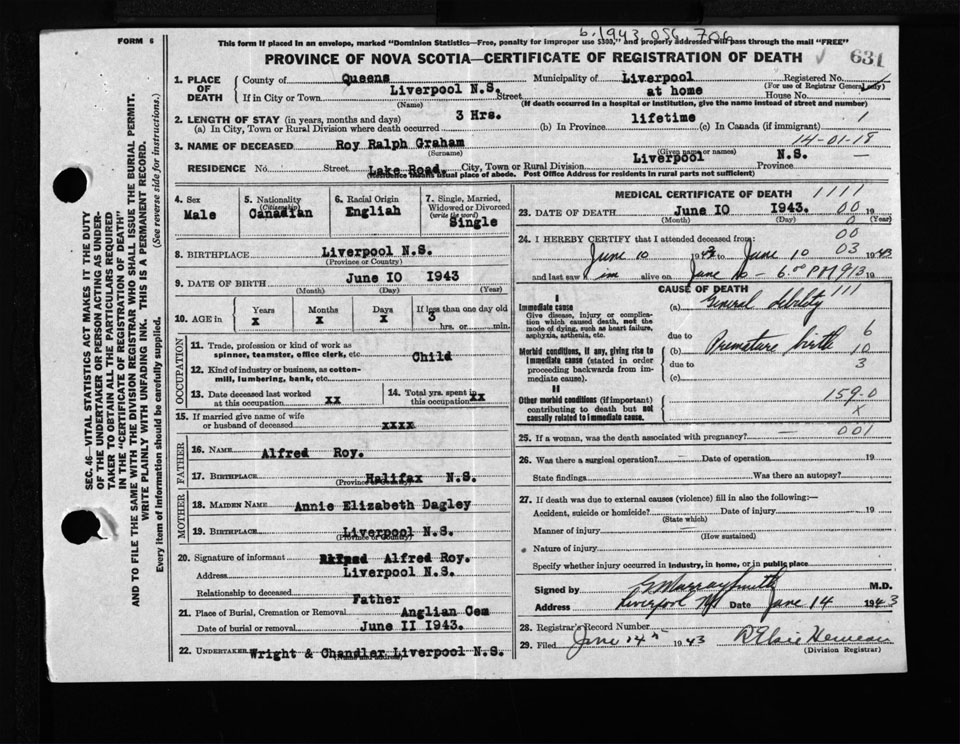 b. 1943 056 706
FORM 6 This form if placed in an envelope, marked "Dominion Statistics—Free, penalty for improper use $300," and properly addressed will pass through the mail "FREE"
PROVINCE OF NOVA SCOTIA—CERTIFICATE OF REGISTRATION OF DEATH 631
1. PLACE OF DEATH County of Queens Municipality of Liverpool Registered No.
(For use of Registrar General only)
If in City or Town Liverpool N.S. Street at home House No.
(Name) (If death occurred in a hospital or institution, give the name instead of street and number)
2. LENGTH OF STAY (in years, months and days)
(a) In City, Town or Rural Division where death occurred 3 Hrs. (b) In Province lifetime (c) In Canada (if immigrant) 1
14-01-18
3. NAME OF DECEASED Roy Ralph Graham
(Surname) (Given name or names)
RESIDENCE No. Street Lake Road. City, Town or Rural Division Liverpool N.S. Province
(Residence means usual place of abode. Post Office Address for residents in rural parts not sufficient)
4. Sex Male
5. Nationality (Citizenship) Canadian
6. Racial Origin English
7. Single, Married, Widowed or Divorced (write the word) Single
8. BIRTHPLACE Liverpool N.S.
(Province or Country)
9. DATE OF BIRTH June 10 1943
(Month) (Day) (Year)
10. AGE in Years x Months x Days x If less than one day old 3 hrs. or min.
OCCUPATION
11. Trade, profession or kind of work as spinner, teamster, office clerk, etc. Child
12. Kind of industry or business, as cotton-mill, lumbering, bank, etc.
13. Date deceased last worked at this occupation xx
14. Total yrs. spent in this occupation xx
15. If married give name of wife or husband of deceased xxxx
FATHER
16. NAME Alfred Roy.
17. BIRTHPLACE Halifax N.S.
(Province or Country)
MOTHER
18. MAIDEN NAME Annie Elizabeth Dagley
19. BIRTHPLACE Liverpool N.S.
(Province or Country)
20. Signature of informant Alfred Roy.
Address Liverpool N.S.
Relationship to deceased Father
21. Place of Burial, Cremation or Removal Anglian Cem
Date of burial or removal June II 1943.
22. UNDERTAKER Wright & Chandler Liverpool N.S.
(Name and address)
MEDICAL CERTIFICATE OF DEATH 1111
23. DATE OF DEATH June 10 1943. 00 19
(Month) (Day) (Year)
0
24. I HEREBY CERTIFY that I attended deceased from: 00
June 10 1943 to June 10 03 1943
and last saw im alive on June 10 - 6 00 PM 913 19
CAUSE OF DEATH
I
Immediate cause
Give disease, injury or complication which caused death, not the mode of dying, such as heart failure, asphyxia, asthenia, etc.
(a) General debility 111
due to 6
Morbid conditions, if any, giving rise to immediate cause (stated in order proceeding backwards from immediate cause).
(b) Premature birth 10
due to 3
(c)
II
Other morbid conditions (if important) contributing to death but not causally related to immediate cause.
159-0
x
25. If a woman, was the death associated with pregnancy? 001
26. Was there a surgical operation? Date of operation 19
State findings Was there an autopsy?
27. If death was due to external causes (violence) fill in also the following:—
Accident, suicide or homicide? Date of injury 19
(State which)
Manner of injury
(How sustained)
Nature of injury
Specify whether injury occurred in industry, in home, or in public place
Signed by G Murray Smith M.D.
Address Liverpool NS Date June 14 1943
28. Registrar's Record Number
29. Filed June 14th 1943
(Division Registrar)
SEC. 46—VITAL STATISTICS ACT MAKES IT THE DUTY
OF THE UNDERTAKER OR PERSON ACTING AS UNDER-
TAKER TO OBTAIN ALL THE PARTICULARS REQUIRED
IN THE "CERTIFICATE OF REGISTRATION OF DEATH"
AND TO FILE THE SAME WITH THE DIVISION REGISTRAR WHO SHALL ISSUE THE BURIAL PERMIT.
WRITE PLAINLY WITH UNFADING INK. THIS IS A PERMANENT RECORD.
Every item of information should be carefully supplied. (See reverse side for instructions.)